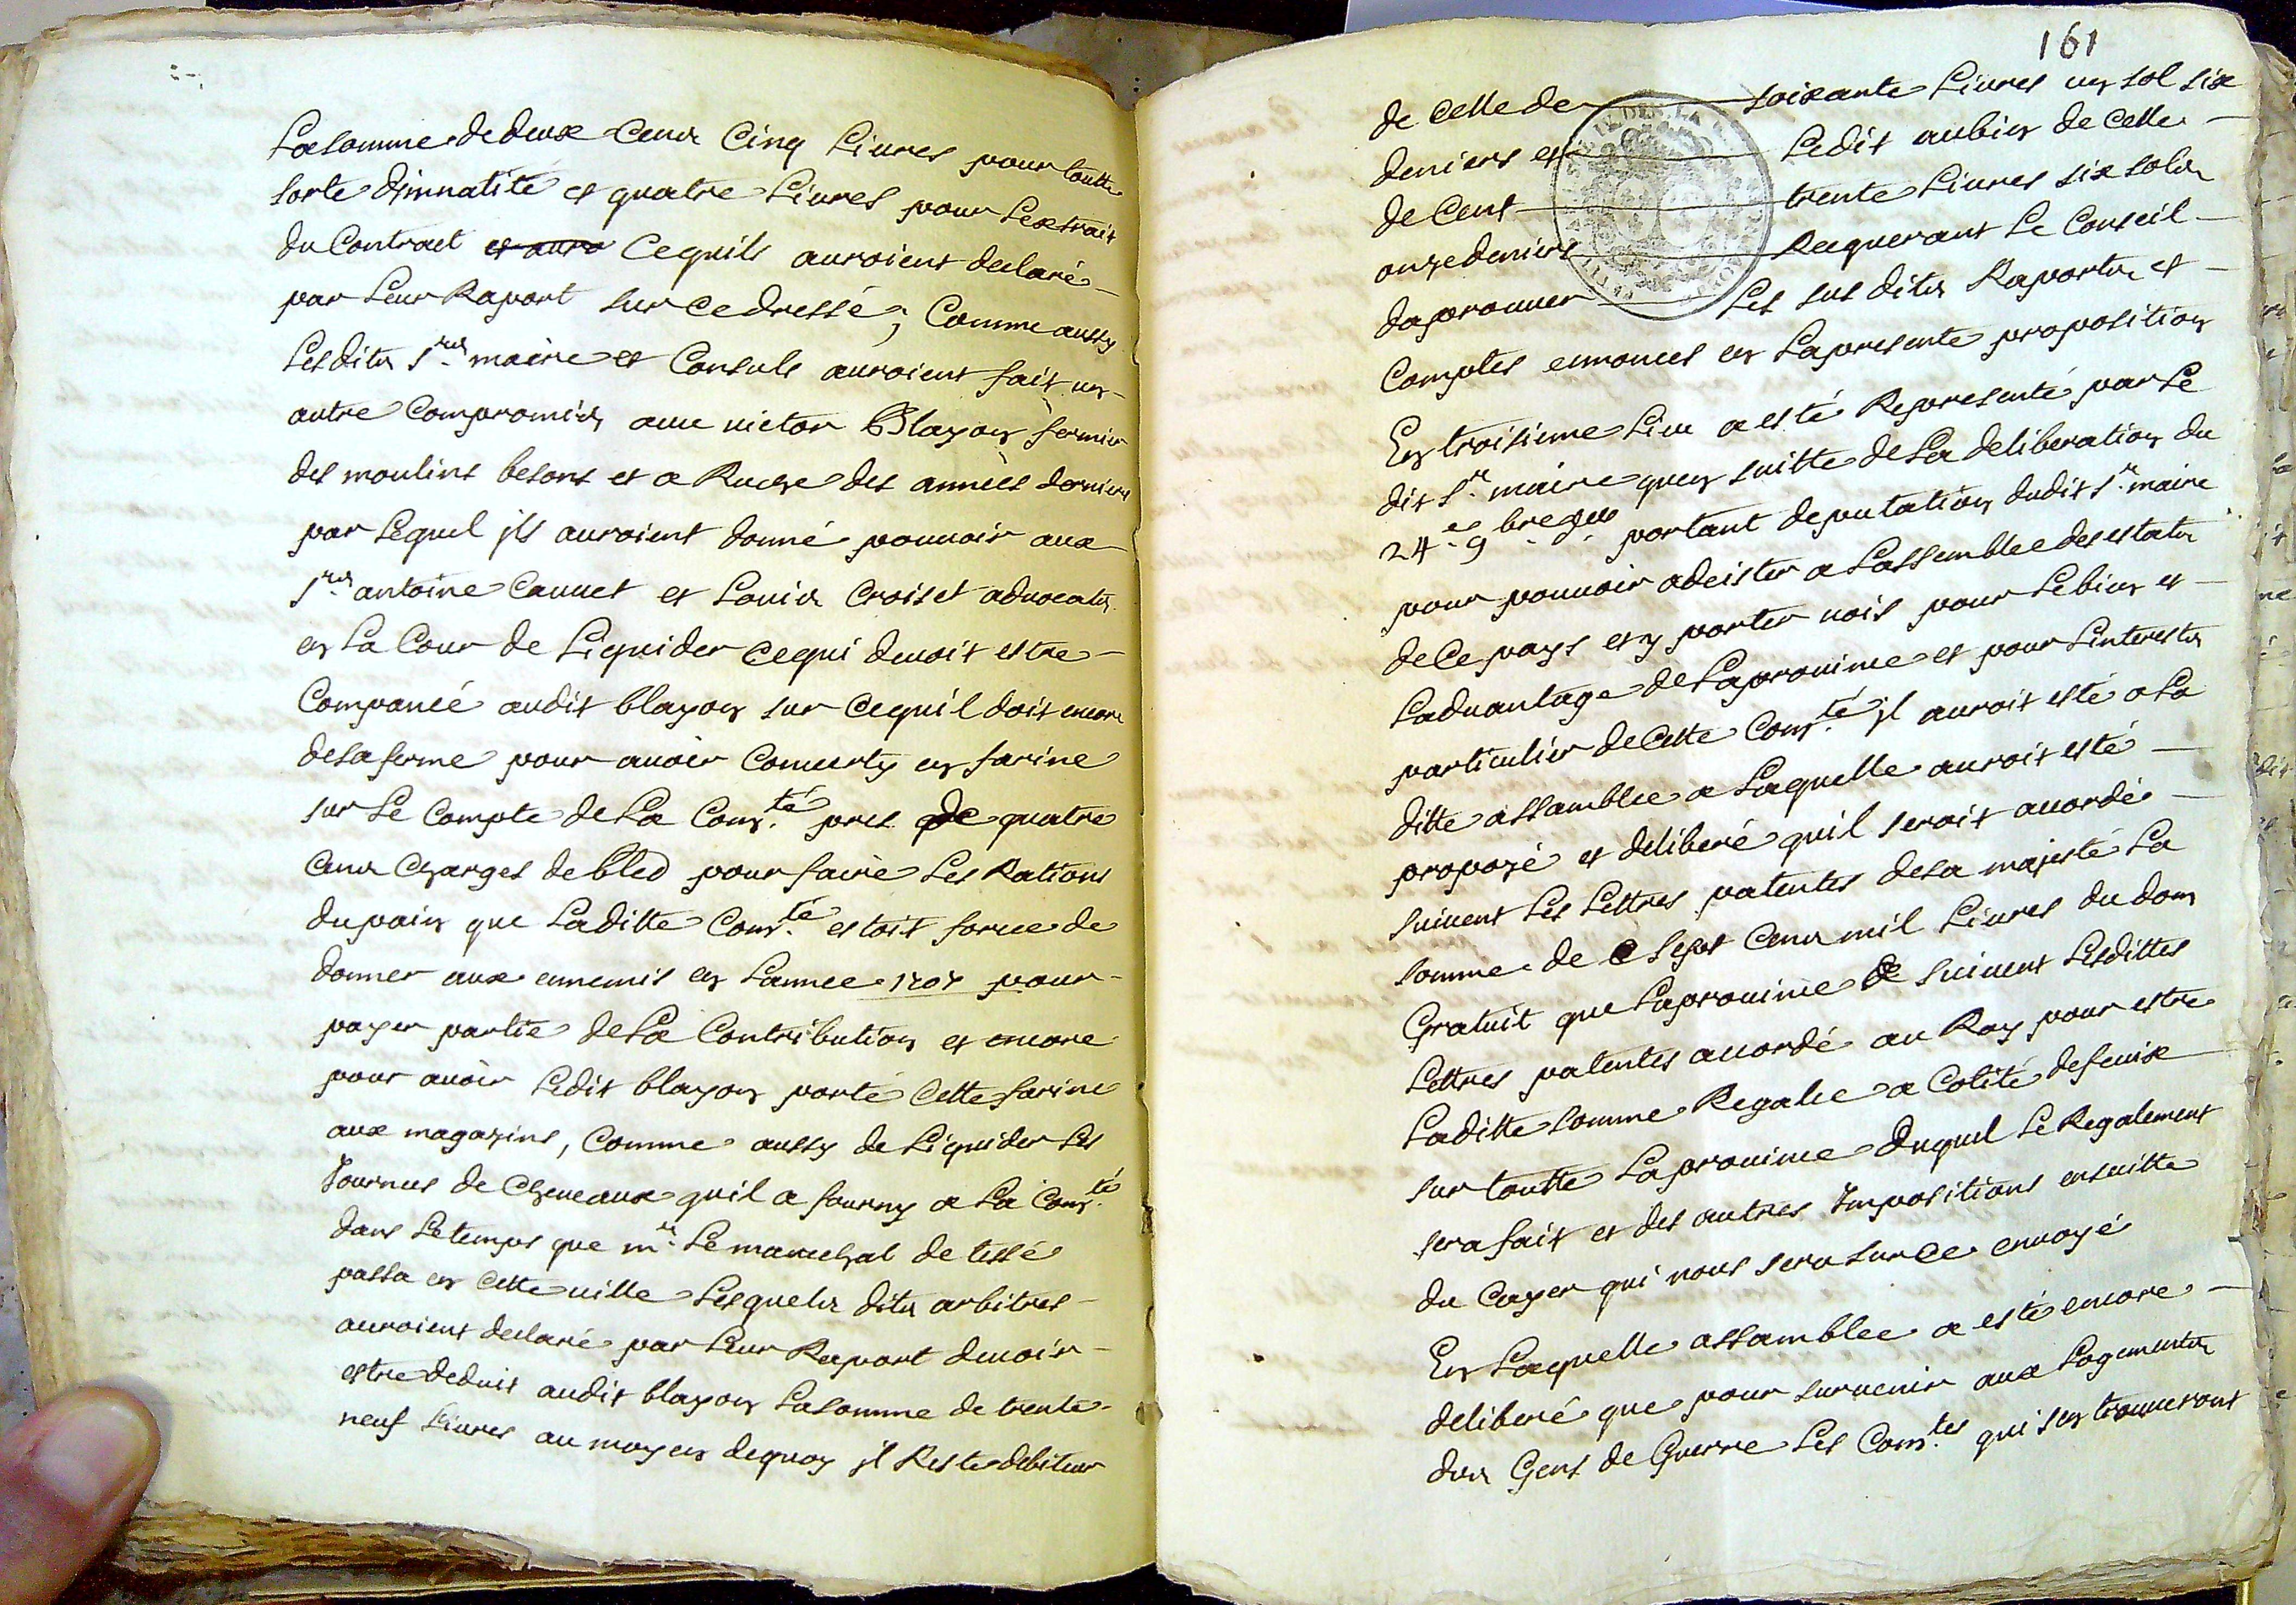 La somme de deux cens cinq Livres pour toutte
sorte dinnutité et quatre Livres pour Lextrait
du Contract et auro Cequils auroient declaré
par Leur Raport sur ce dressé; Comme aussy
Lesdits Srs maire et Consuls auroient fait un
autre Compromis auec victor Blayon fermier
des moulins besons et a Ruche des années dernieres
par Lequel jls auroient donné pouuoir aux
Srs antoine Cauuet et Louis Croiset aduocats
en La Cour de Liquider cequi deuoit estre
Compancé audit blayon sur cequil doit encore
desaferme pour auoir Conuerty en farine
sur Le Compte de La Comté pres de quatre
cens charges de bled pour faire Les Rations
dupain que Laditte Comté estoit forcee de
donner aux ennemis en Lannee 1707 pour
payer partie de La Contribution et encore
pour auoir Ledit blayon porté Cette farine
aux magazins, Comme aussy de Liquider Les
Journees de cheueaux quil a fourny a La Comté
dans Letemps que mr Le marechal de tessé
passa en cette uille Lesquels dits arbitres
auroient declaré par Leur Raport deuoir
estre deduit audit blayon Lasomme de trente
neuf Liures au moyen dequoy jl Reste debiteur
161
de celle de soixante Liures un sol six
deniers et Ledit aubin de Celle
de Cent trente Liures six sols
onze deniers Requerant Le Conseil
daprouuer Les sus dits Raports et
Comptes ennonces en Lapresente proposition
En troisieme Lieu a esté Representé par Le
dit Sr maire quen suitte de La deliberation du
24e 9bre portant deputation dudit Sr maire
pour pouuoir adcister a Lassemblee des estats
de Ce pays et y porter uois pour Le bien et
Laduantage de Laprouince et pour Linterests
particulier de Cette Comté jl auroit esté a La
ditte assamblee a Laquelle auroit esté
propozé et deliberé quil seroit accordé
suiuent Les Lettres patentes de sa majesté La
somme de sept cens mil Liures du don
Gratuit que Laprouince de suiuent Lesdittes
Lettres patentes accordé au Roy pour estre
Laditte somme Regalee a Cotité defeux
sur toutte Laprouince duquel Le Regalement
sera fait et des autres Jmpositions ensuitte
du Cayer qui nous sera sur ce enuoyé
En Laquelle assamblee a esté encore
deliberé que pour suruenir aux Logements
des Gens de Guerre Les Comtes qui sen trouueront